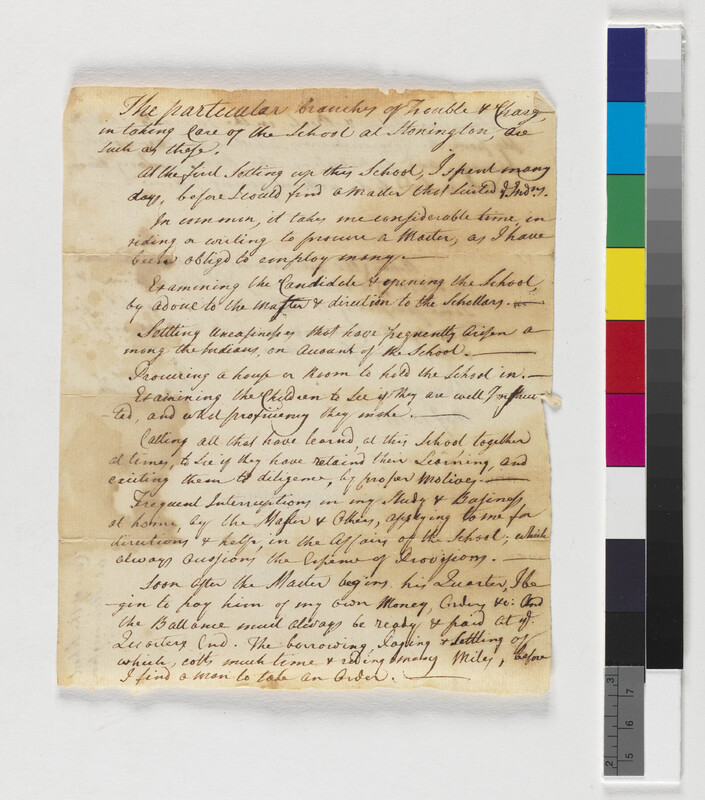 The particular branches of Trouble & Charg,
in taking Care of the School at Stonington, are
such as these.
At the first Setting up this School, I spent many
days, before I could find a Master that Suited ye Indns.
In common, it takes me considerable time, in
riding or writing to procure a Master, as I have
been obligd to employ many.
Examining the Candidate & opening the School,
by advice to the Master & direction to the Schollars.
Settling Uneasinesses that have frequently Arisen a
mong the Indians, on Account of the School.
Procuring a house or Room to hold the School in.
Examining the Children to See if they are well Instruc
ted, and what proficiency they make.
Calling all that have learnd, at this School together
at times, to See if they have retaind their Learning, and
exciting them to diligence, by proper Motives.
Frequent Interruptions in my Study & Business
at home, by the Master & Others, applying to me for
directions & help, in the Affairs of the School; which
always occasions the Expense of Provisions.
Soon after the Master begins his Quarter, I be
gin to pay him of my own Money, Orders &c: And
the Ballance must always be ready & paid At ye
Quarters End. The borrowing, & settling of
which, costs much time & riding many Miles, before
I find a man to take an Order.
2 3
5 6 7